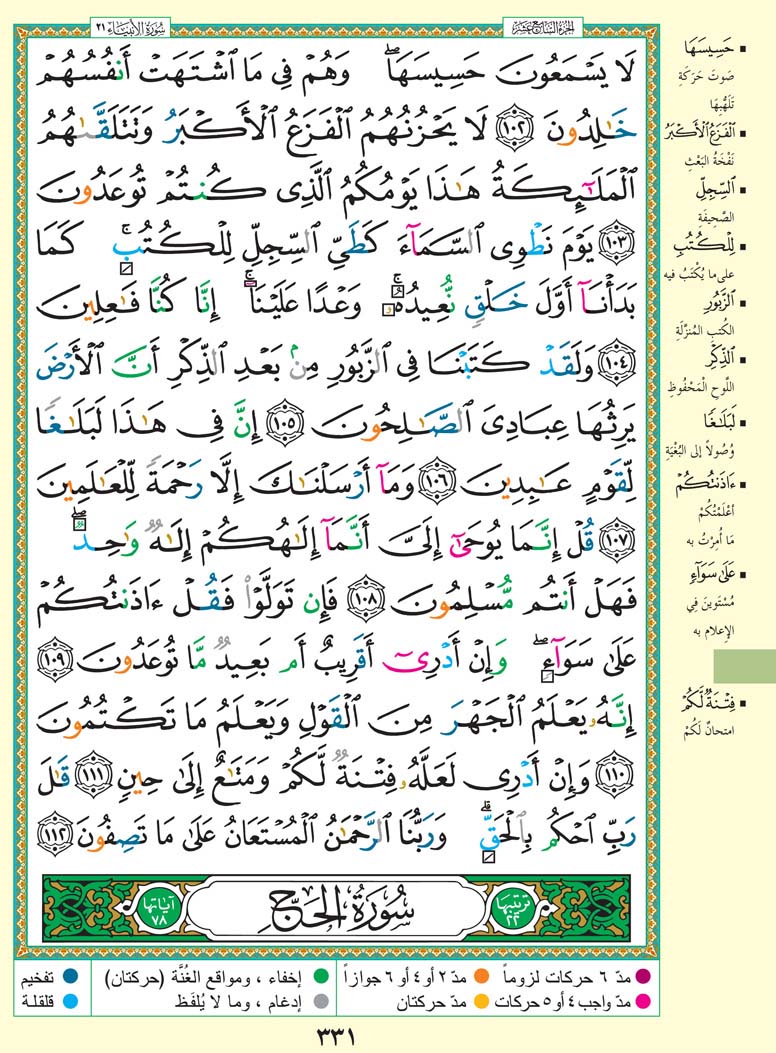 الجزء السابع عشر
سورة الأنبياء ٢١
لَا يَسْمَعُونَ حَسِيسَهَا ۖ وَهُمْ فِى مَا ٱشْتَهَتْ أَنفُسُهُمْ
خَٰلِدُونَ ١٠٢ لَا يَحْزُنُهُمُ ٱلْفَزَعُ ٱلْأَكْبَرُ وَتَتَلَقَّىٰهُمُ
ٱلْمَلَٰٓئِكَةُ هَٰذَا يَوْمُكُمُ ٱلَّذِى كُنتُمْ تُوعَدُونَ
١٠٣ يَوْمَ نَطْوِى ٱلسَّمَآءَ كَطَىِّ ٱلسِّجِلِّ لِلْكُتُبِ ۚ كَمَا
بَدَأْنَآ أَوَّلَ خَلْقٍ نُّعِيدُهُۥ ۚ وَعْدًا عَلَيْنَآ ۚ إِنَّا كُنَّا فَٰعِلِينَ
١٠٤ وَلَقَدْ كَتَبْنَا فِى ٱلزَّبُورِ مِنۢ بَعْدِ ٱلذِّكْرِ أَنَّ ٱلْأَرْضَ
يَرِثُهَا عِبَادِىَ ٱلصَّٰلِحُونَ ١٠٥ إِنَّ فِى هَٰذَا لَبَلَٰغًا
لِّقَوْمٍ عَٰبِدِينَ ١٠٦ وَمَآ أَرْسَلْنَٰكَ إِلَّا رَحْمَةً لِّلْعَٰلَمِينَ
١٠٧ قُلْ إِنَّمَا يُوحَىٰٓ إِلَىَّ أَنَّمَآ إِلَٰهُكُمْ إِلَٰهٌ وَٰحِدٌ ۖ
فَهَلْ أَنتُم مُّسْلِمُونَ ١٠٨ فَإِن تَوَلَّوْا۟ فَقُلْ ءَاذَنتُكُمْ
عَلَىٰ سَوَآءٍ ۖ وَإِنْ أَدْرِىٓ أَقَرِيبٌ أَم بَعِيدٌ مَّا تُوعَدُونَ ١٠٩
إِنَّهُۥ يَعْلَمُ ٱلْجَهْرَ مِنَ ٱلْقَوْلِ وَيَعْلَمُ مَا تَكْتُمُونَ
١١٠ وَإِنْ أَدْرِى لَعَلَّهُۥ فِتْنَةٌ لَّكُمْ وَمَتَٰعٌ إِلَىٰ حِينٍ ١١١ قَٰلَ
رَبِّ ٱحْكُم بِٱلْحَقِّ ۗ وَرَبُّنَا ٱلرَّحْمَٰنُ ٱلْمُسْتَعَانُ عَلَىٰ مَا تَصِفُونَ ١١٢
ترتيبها ٢٢
سُورَةُ الحَجِّ
آياتها ٧٨
حَسِيسَهَا
صَوتَ حَرَكَةِ
تَلَهُّبِهَا
ٱلْفَزَعُ ٱلْأَكْبَرُ
نَفْخَةُ البَعْثِ
ٱلسِّجِلِّ
الصَّحِيفَةِ
لِلْكُتُبِ
على ما يُكْتَبُ فيه
ٱلزَّبُورِ
الكُتبِ المُنزلَةِ
ٱلذِّكْرِ
اللَّوحِ الْمَحْفُوظِ
لَبَلَٰغًا
وُصُولاً إلى البُغْيَةِ
ءَاذَنتُكُمْ
أعْلَمْتُكُمْ
مَا أُمِرْتُ به
عَلَىٰ سَوَآءٍ
مُسْتَوِينَ فِي
الإعلامِ به
فِتْنَةٌ لَّكُمْ
امتحانٌ لَكُمْ
مدّ ٦ حركات لزوماً
مدّ ٢ أو ٤ أو ٦ جوازاً
إخفاء ، ومواقع الغُنَّة (حركتان)
تفخيم
مدّ واجب ٤ أو ٥ حركات
مدّ حركتان
إدغام ، وما لا يُلفَظ
قلقلة
٣٣١